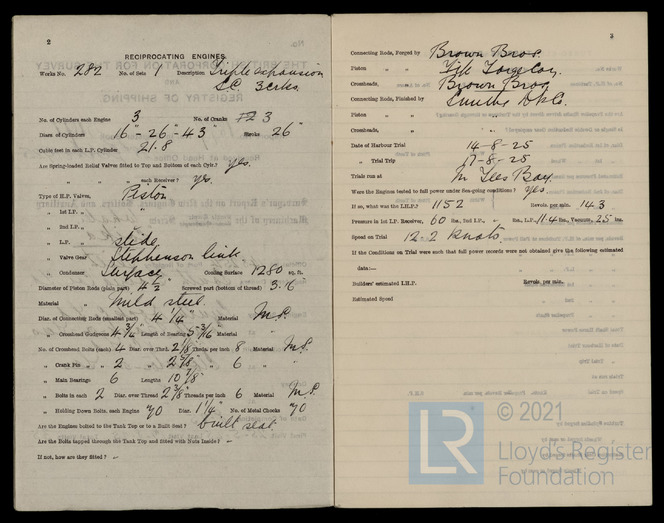 2
RECIPROCATING ENGINES.
Works No. 282 No. of Sets 1 Description Triple expansion
S.C. 3 crks.
No. of Cylinders each Engine 3 No. of Cranks 3
Diars. of Cylinders 16" - 26" - 43" Stroke 26"
Cubic feet in each L.P. Cylinder 21.8
Are Spring-loaded Relief Valves fitted to Top and Bottom of each Cylr.? Yes.
" " each Receiver? Yes.
Type of H.P. Valves, Piston
" 1st I.P. "
" 2nd I.P. "
" L.P. " slide
" Valve Gear Stephenson link
" Condenser Surface Cooling Surface 1280 sq. ft.
Diameter of Piston Rods (plain part) 4½" Screwed part (bottom of thread) 3.16
Material " Mild steel
Diar. of Connecting Rods (smallest part) 4¼" Material M.S.
" Crosshead Gudgeons 4¾" Length of Bearing 5 3/16 Material "
No. of Crosshead Bolts (each) 4 Diar. over Thrd. 2⅛" Thrds. per inch 8 Material M.S.
" Crank Pin " 2 " 2⅞" " 6 "
" Main Bearings 6 Lengths 10⅞"
" Bolts in each 2 Diar. over Thread 2⅞" Threads per inch 6 Material M.S.
" Holding Down Bolts, each Engine 70 Diar. 1¼" No. of Metal Chocks 70
Are the Engines bolted to the Tank Top or to a Built Seat? built seat
Are the Bolts tapped through the Tank Top and fitted with Nuts Inside? -
If not, how are they fitted? -
3
Connecting Rods, Forged by Brown Bros.
Piston " "
Crossheads, " " Brown Bros
Connecting Rods, Finished by
Piston " "
Crossheads, " "
Date of Harbour Trial 14-8-25
" Trial Trip 17-8-25
Trials run at In Tees Bay.
Were the Engines tested to full power under Sea-going conditions? Yes.
If so, what was the I.H.P.? 1152 Revols. per min. 143
Pressure in 1st I.P. Receiver, 60 lbs., 2nd I.P., " lbs., L.P., 11.4 lbs., Vacuum, 25 ins.
Speed on Trial 12.2 knots.
If the Conditions on Trial were such that full power records were not obtained give the following estimated
data:-
Builders' estimated I.H.P. Revols. per min.
Estimated Speed
LR
© 2021
Lloyd's Register
Foundation